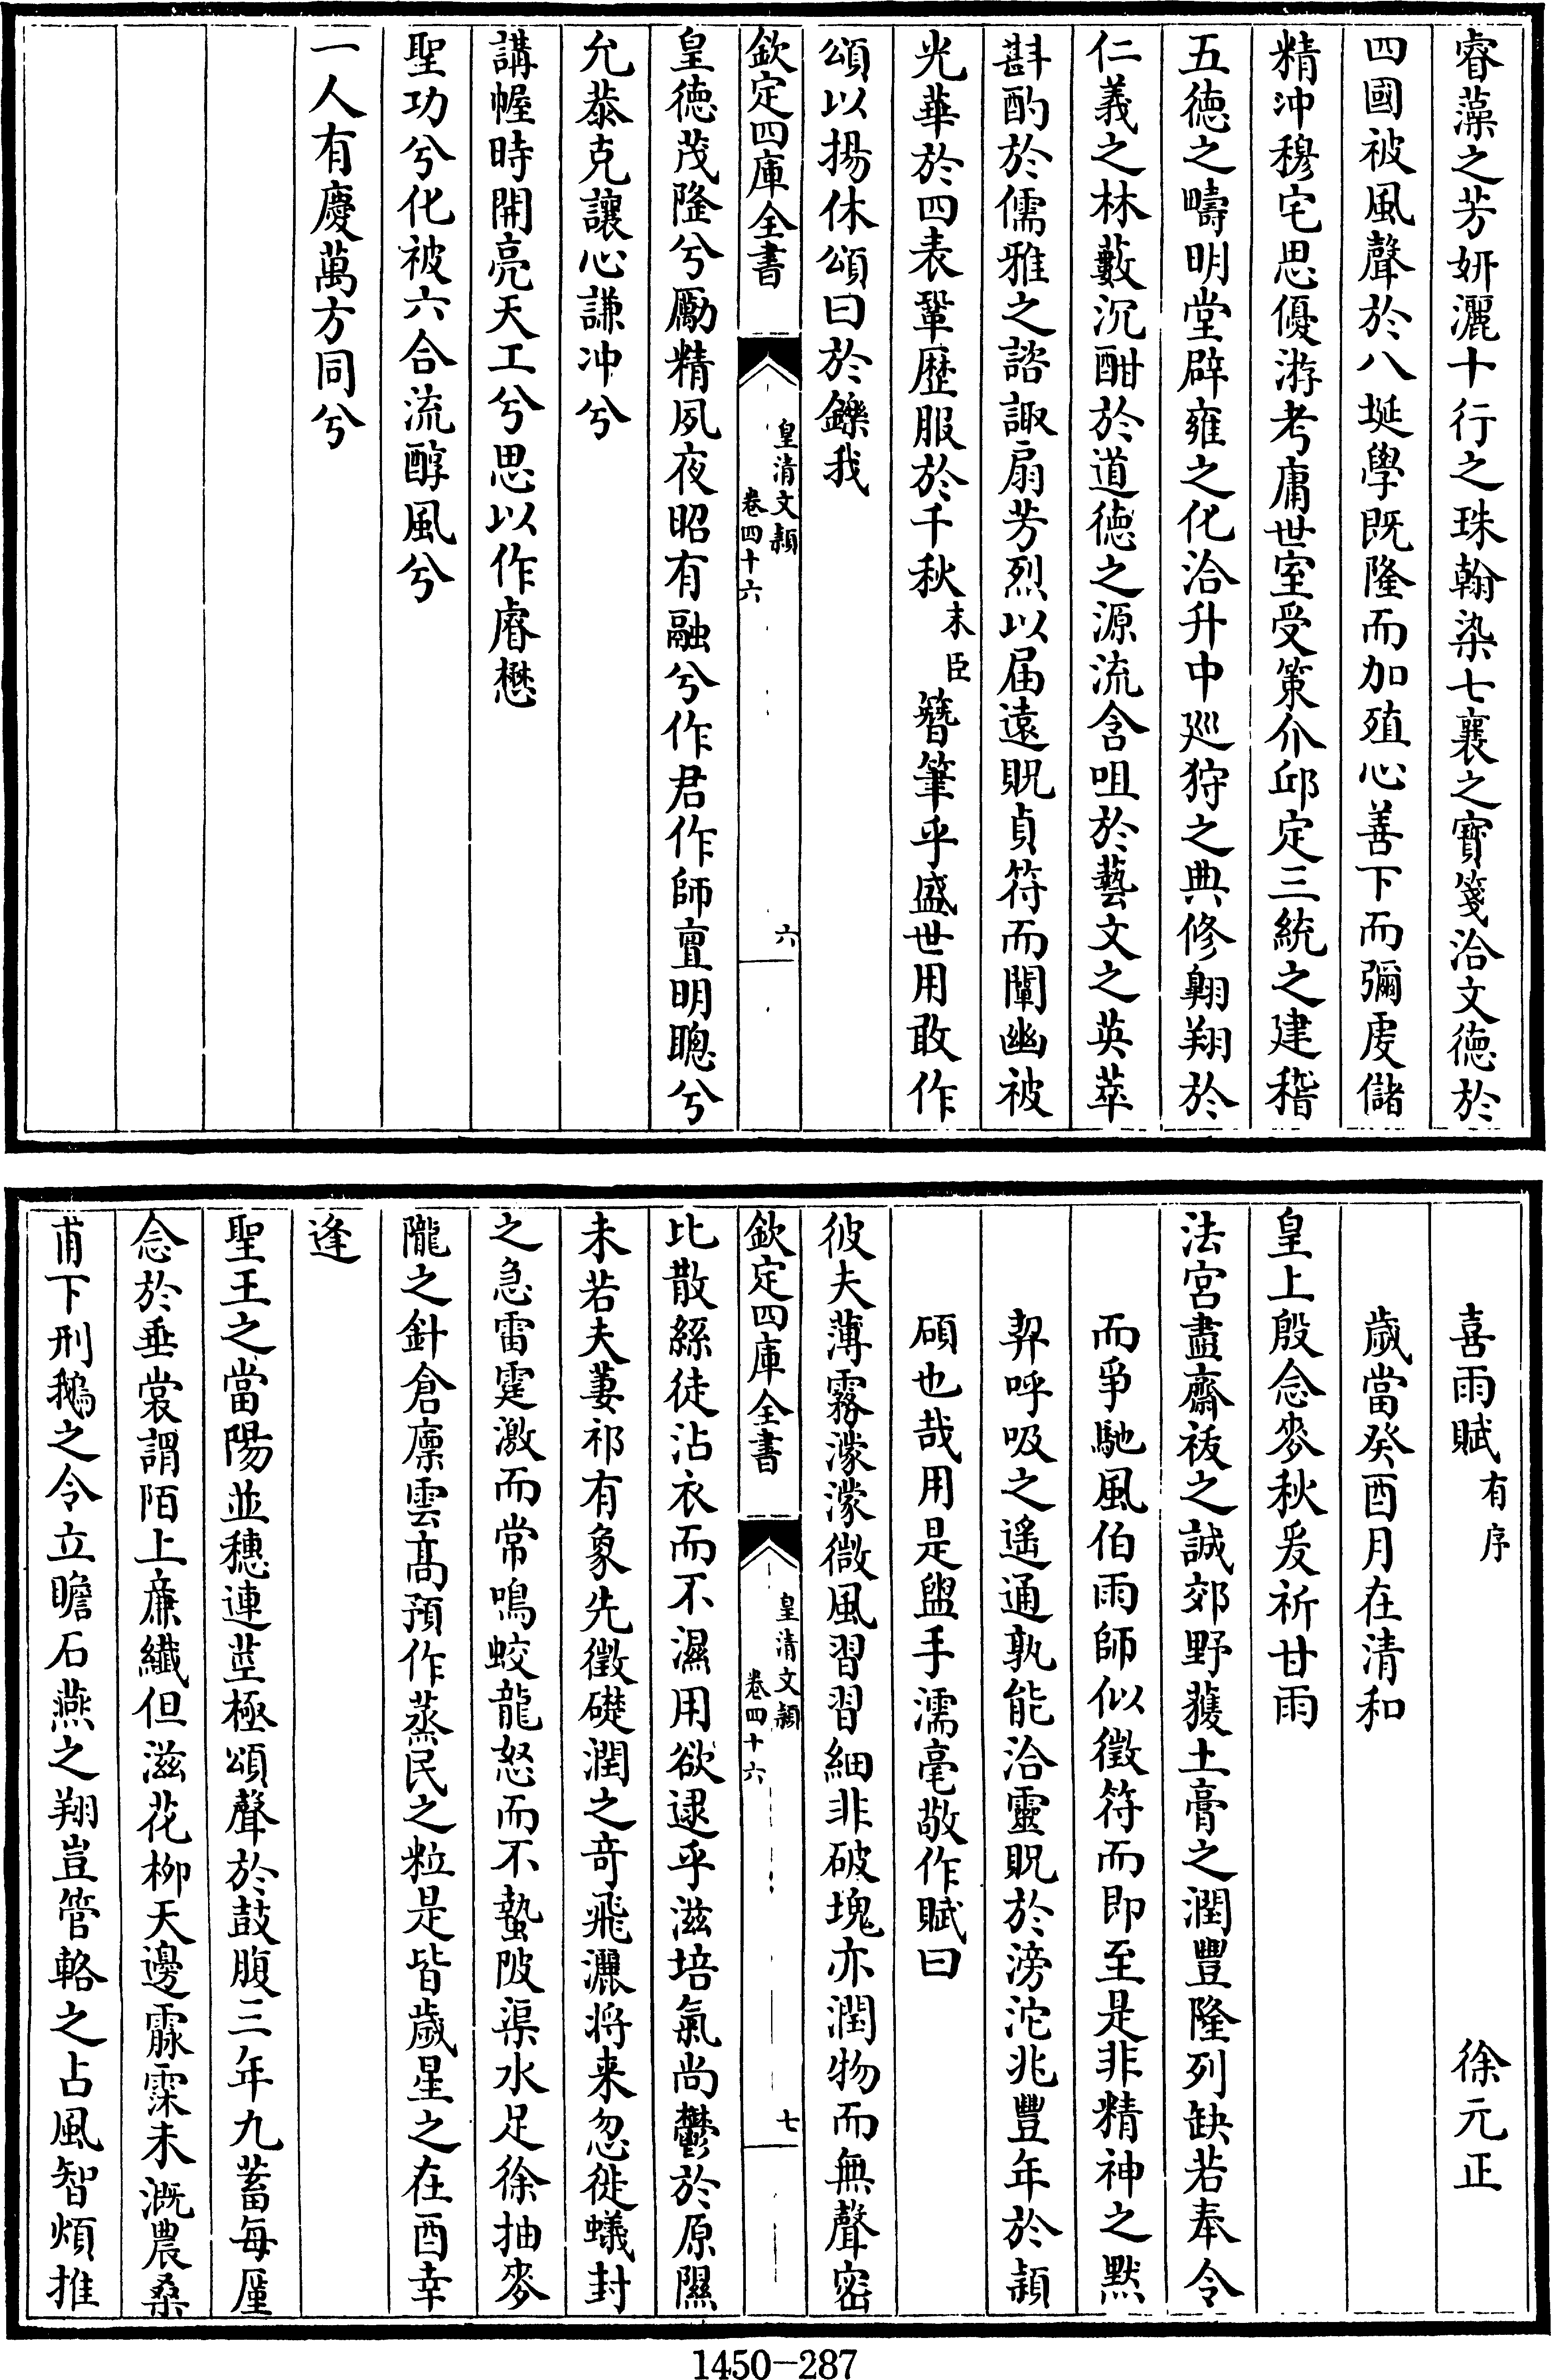 睿藻之芳妍灑十行之珠翰染七襄之寶箋洽文德於
四國被風聲於八埏學既隆而加殖心善下而彌虔儲
精沖穆宅思優游考庸世室受策介邱定三統之建稽
五德之疇明堂辟雍之化洽升中巡狩之典修翺翔於
仁義之林藪沉酣於道德之源流含咀於藝文之英萃
斟酌於儒雅之諮諏扇芳烈以届遠貺貞符而闡幽被
光華於四表鞏歴服於千秋末臣簪筆乎盛世用敢作
頌以揚休頌曰於鑠我
欽定四庫全書 皇清文穎 卷四十六 六
皇德茂隆兮勵精夙夜昭有融兮作君作師亶明聰兮
允恭克讓心謙沖兮
講幄時開亮天工兮思以作睿懋
聖功兮化被六合流醇風兮
一人有慶萬方同兮
喜雨賦有序 徐元正
歲當癸酉月在清和
皇上殷念麥秋爰祈甘雨
法宮盡齋祓之誠郊野獲土膏之潤豐隆列缺若奉令
而爭馳風伯雨師似徵符而即至是非精神之默
契呼吸之遙通孰能洽靈貺於滂沱兆豐年於穎
碩也哉用是盥手濡毫敬作賦曰
彼夫薄霧濛濛微風習習細非破塊亦潤物而無聲密
欽定四庫全書 皇清文穎 卷四十六 七
比散絲徒沾衣而不濕用欲逮乎滋培氣尚鬱於原隰
未若夫萋祁有象先徵礎潤之竒飛灑将来忽徙蟻封
之急雷霆激而常鳴蛟龍怒而不蟄陂渠水足徐抽麥
隴之針倉廪雲髙預作蒸民之粒是皆歲星之在酉幸
逢
聖王之當陽並穗連莖極頌聲於鼓腹三年九蓄每厪
念於垂裳謂陌上亷纎但滋花柳天邊霡霂未溉農桑
甫下刑鵝之令立瞻石燕之翔豈管輅之占風智煩推
1450-287